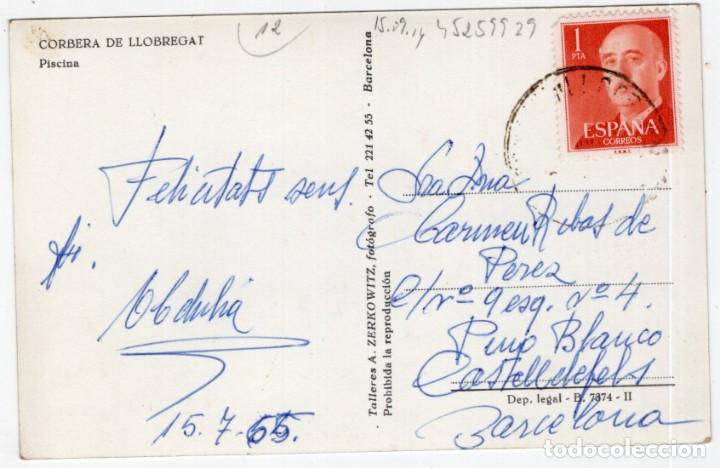 CORBERA DE LLOBREGAT
Piscina
12
15.09.14 45259929
1
PTA
ESPAÑA
CORREOS
F.N.M.T.
Felicitats sens
fi.
Obdulia
15.7-65.
Talleres A. ZERKOWITZ, fotógrafo - Tel 221 42 55 - Barcelona
Prohibida la reproducción
Sra Dna
Carmen Ribas de
Perez
c/ nº 9 esq. nº 4.
Pino Blanco
Castelldefels
Barcelona
Dep. legal - B. 7374 - II
todocoleccion